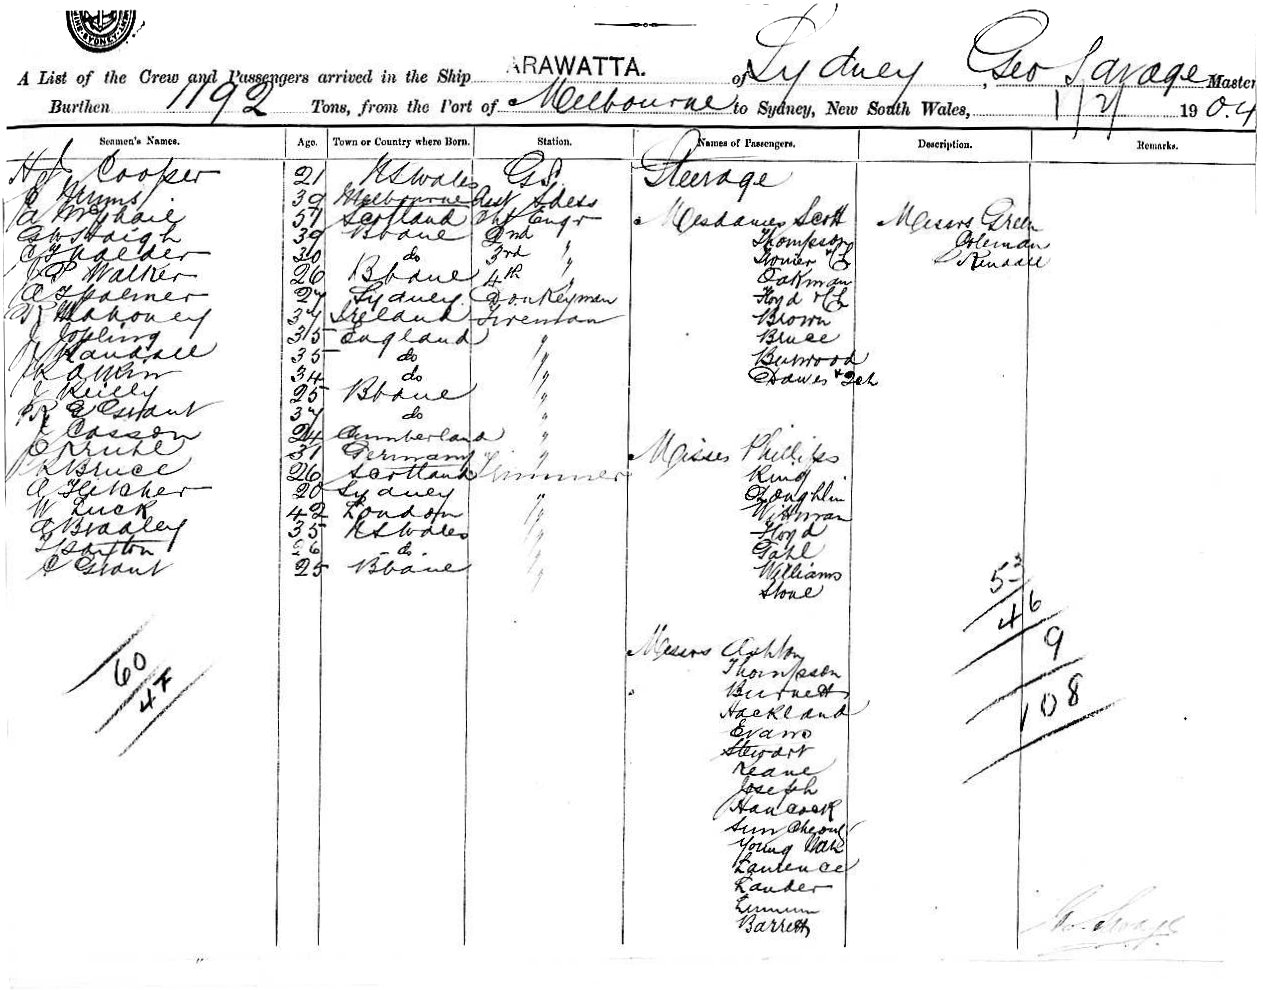 ARAWATTA.
A List of the Crew and Passengers arrived in the Ship of Sydney, Geo Savage Master
Burthen 1192 Tons, from the Port of Melbourne to Sydney, New South Wales, 1/2/ 1904
Seamen's Names. Age. Town or Country where Born. Station. Names of Passengers. Description. Remarks.
H J Cooper 21 N S Wales G S Steerage
39 Melbourne Asst Sdess
57 Scotland Engr Mesdames Scott Messrs Green
G W Haigh 39 Bbane 2nd " Thompson Coleman
30 do 3rd " Kendall
Walker 26 Bbane 4th " Oakman
Palmer 27 Sydney Donkeyman Floyd
Mahoney 37 Ireland Fireman Brown
Jopling 35 England " Bruce
Randall 35 do " Burwood
34 do " Dawes + 2ch
J Reilly 25 Bbane "
R G Grant 37 do "
Casson 24 Cumberland "
31 Germany " Misses Phillips
Bruce 26 Scotland Trimmer King
A Fletcher 20 Sydney " Loughlin
W Luck 42 London " Wittman
Bradley 35 N S Wales " Floyd
26 do " Gahl
C Grant 25 Bbane " Williams
Stone
53
46
9
108
60
47
Messrs Ashton
Thompson
Burnett
Hackland
Evans
Stewart
Keane
Joseph
Hancock
Sun Cheong
Young
Laurence
Lander
Barrett
Geo Savage